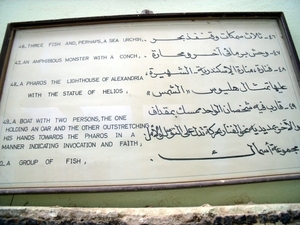 46_ THREE FISH AND, PERHAPS, A SEA URCHIN,
47_ AN AMPHIBIOUS MONSTER WITH A CONCH,
48_ A PHAROS THE LIGHTHOUSE OF ALEXANDRIA
WITH THE STATUE OF HELIOS,
49_ A BOAT WITH TWO PERSONS, THE ONE
HOLDING AN OAR AND THE OTHER OUTSTRETCHING
HIS HANDS TOWARDS THE PHAROS IN A
MANNER INDICATING INVOCATION AND FAITH,
A GROUP OF FISH,
ثلاث سمكات وقنفذ بحر
وحش برمائى آخر ومحارة
فنارة منارة الاسكندرية الشهيرة
عليها تمثال هليوس "الشمس"
قارب فيه شخصان الواحد يمسك بمجداف
مجموعة أسماك